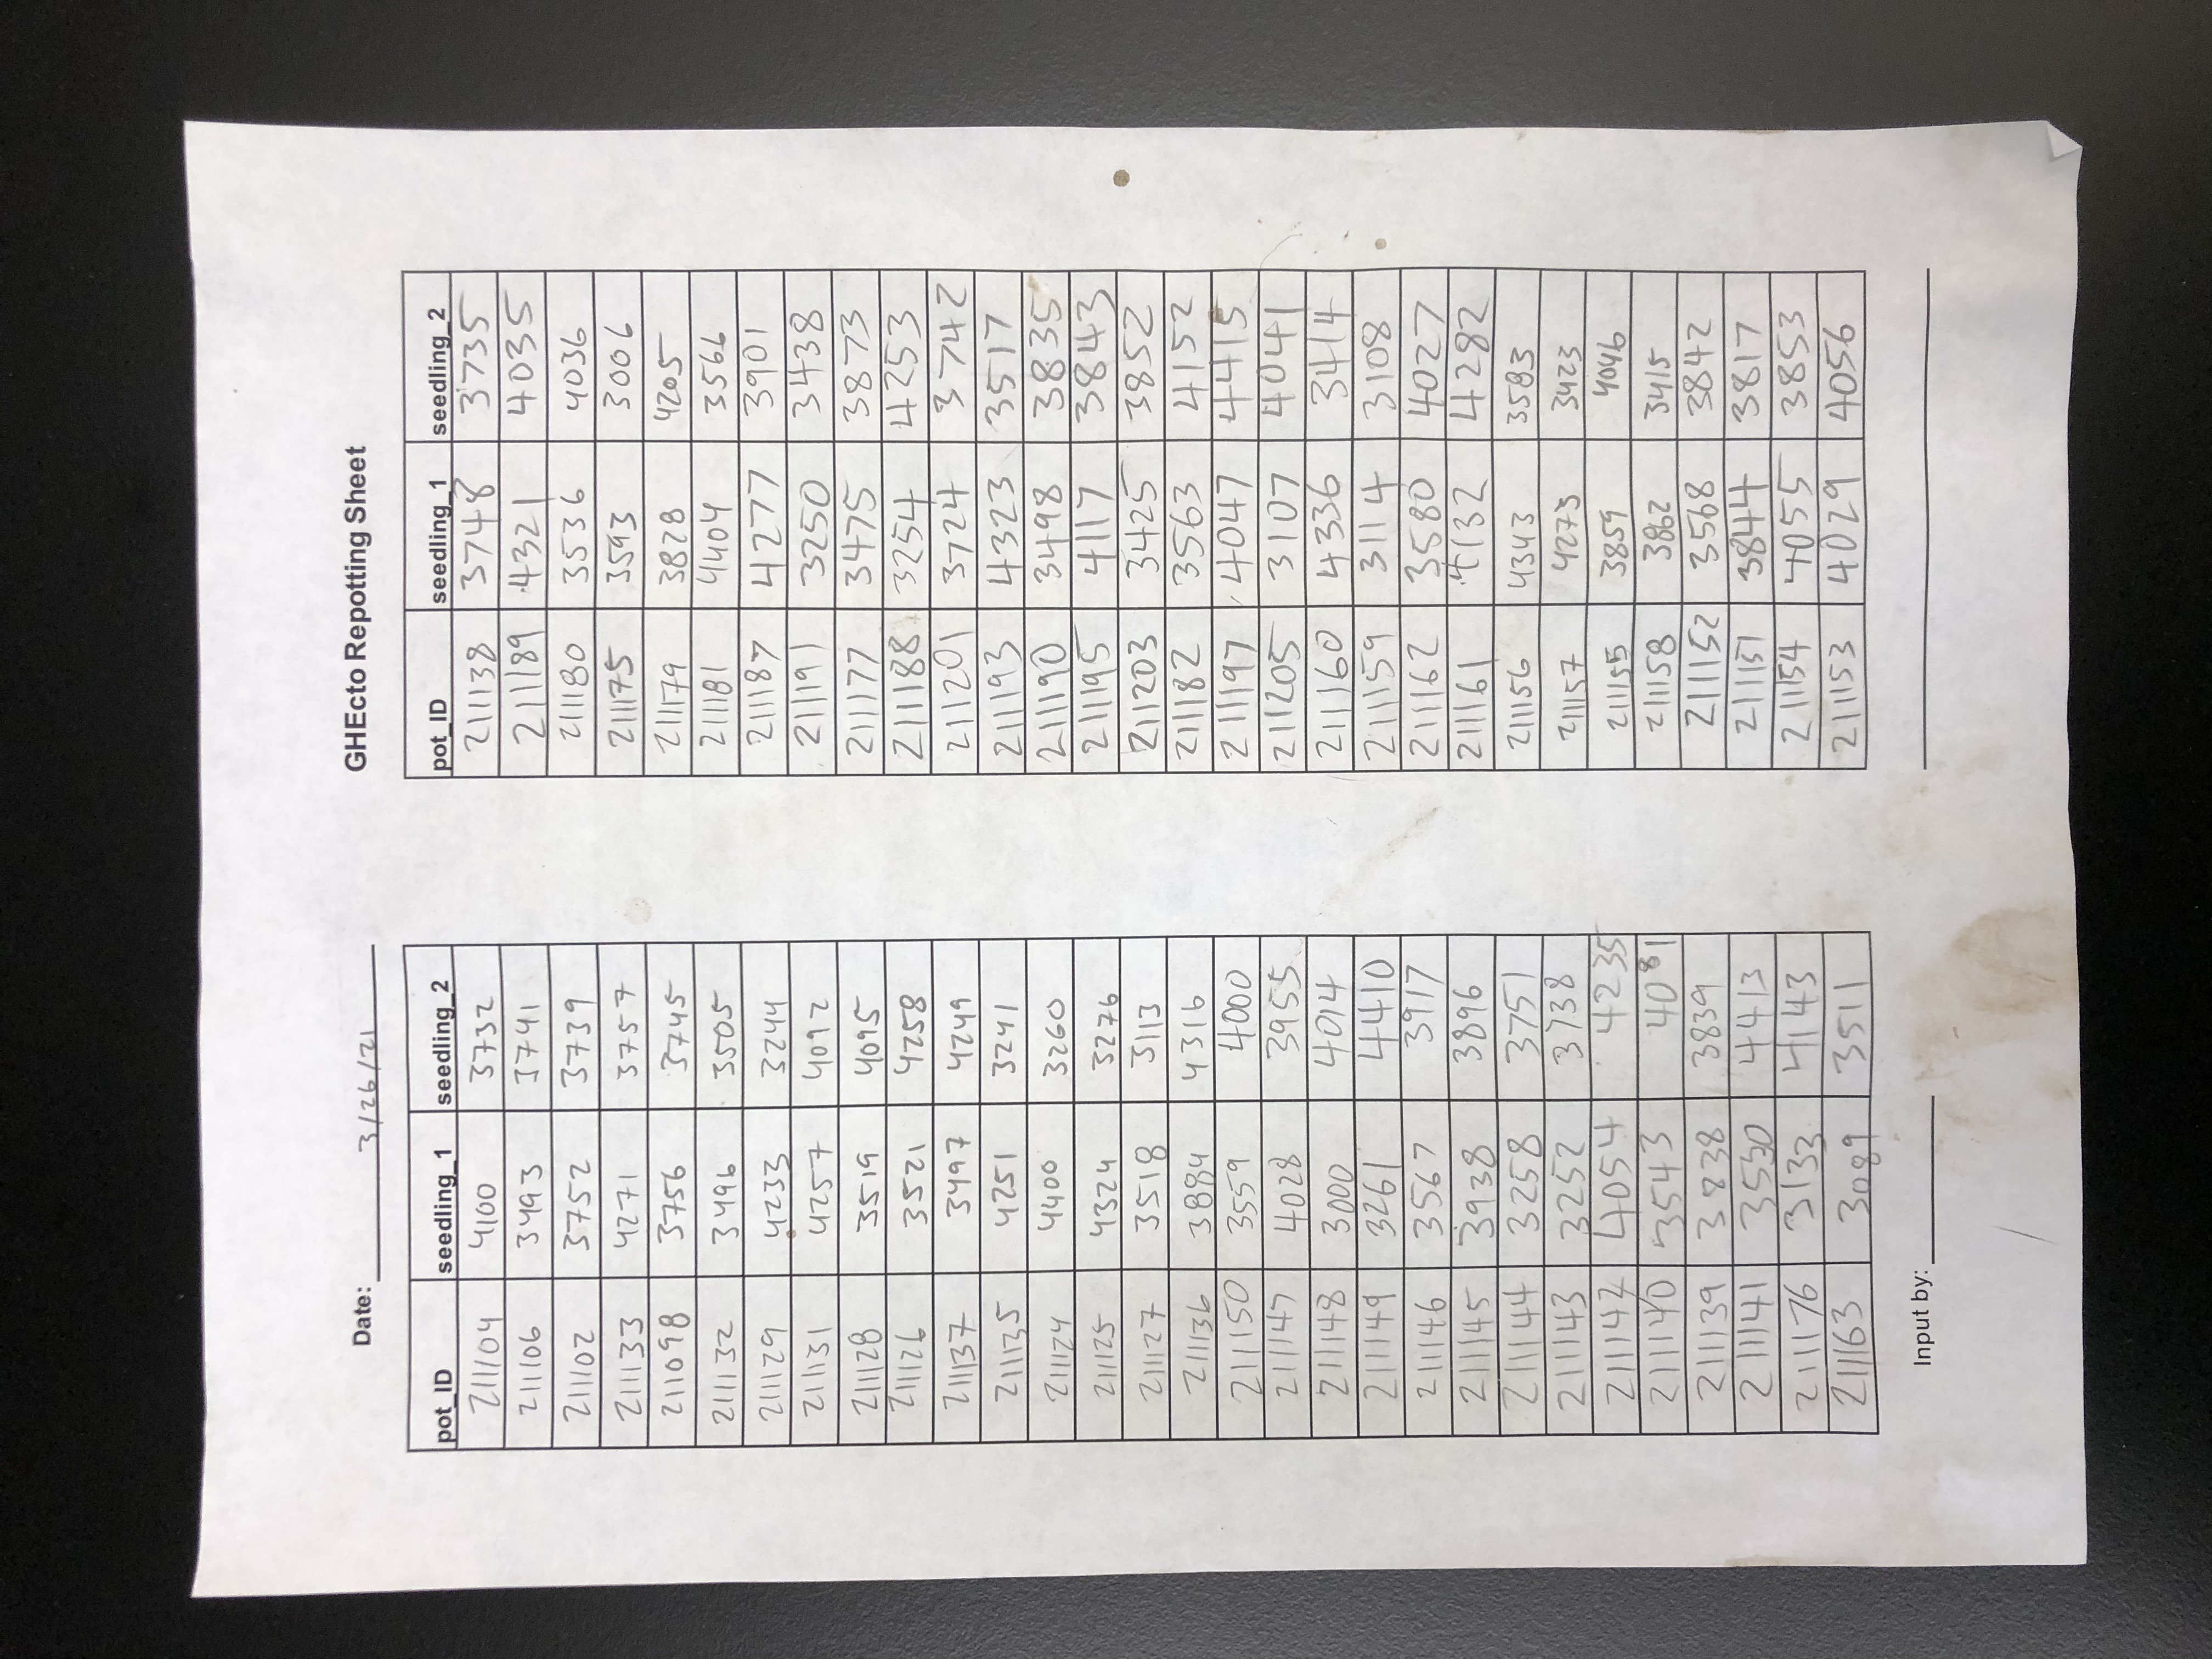 Date: 3/26/21
pot_ID seedling_1 seedling_2
211104 4100 3732
211106 3493 3741
211102 3752 3739
211133 4271 3757
211098 3756 3745
211132 3496 3505
211129 4233 3244
211131 4257 4092
211128 3519 4095
211126 3521 4258
211137 3497 4249
211135 4251 3241
211124 4400 3260
211125 4324 3276
211127 3518 3113
211136 3884 4316
211150 3559 4000
211147 4028 3955
211148 3000 4014
211149 3261 4410
211146 3567 3917
211145 3938 3896
211144 3258 3751
211143 3252 3738
211142 4054 4235
211140 3543 4081
211139 3838 3839
211141 3550 4413
211176 3133 4143
211163 3089 3511
Input by:
GHEcto Repotting Sheet
pot_ID seedling_1 seedling_2
211138 3748 3735
211189 4321 4035
211180 3536 4036
211175 3593 3006
211179 3828 4205
211181 4404 3566
211187 4277 3901
211191 3250 3438
211177 3475 3873
211188 3254 4253
211201 3724 3742
211193 4323 3517
211190 3498 3835
211195 4117 3843
211203 3425 3852
211182 3563 4152
211197 4047 4415
211205 3107 4041
211160 4336 3414
211159 3114 3108
211162 3580 4027
211161 4132 4282
211156 4343 3583
211157 4273 3423
211155 3859 4046
211158 3862 3415
211152 3568 3842
211151 3844 3817
211154 4055 3853
211153 4029 4056